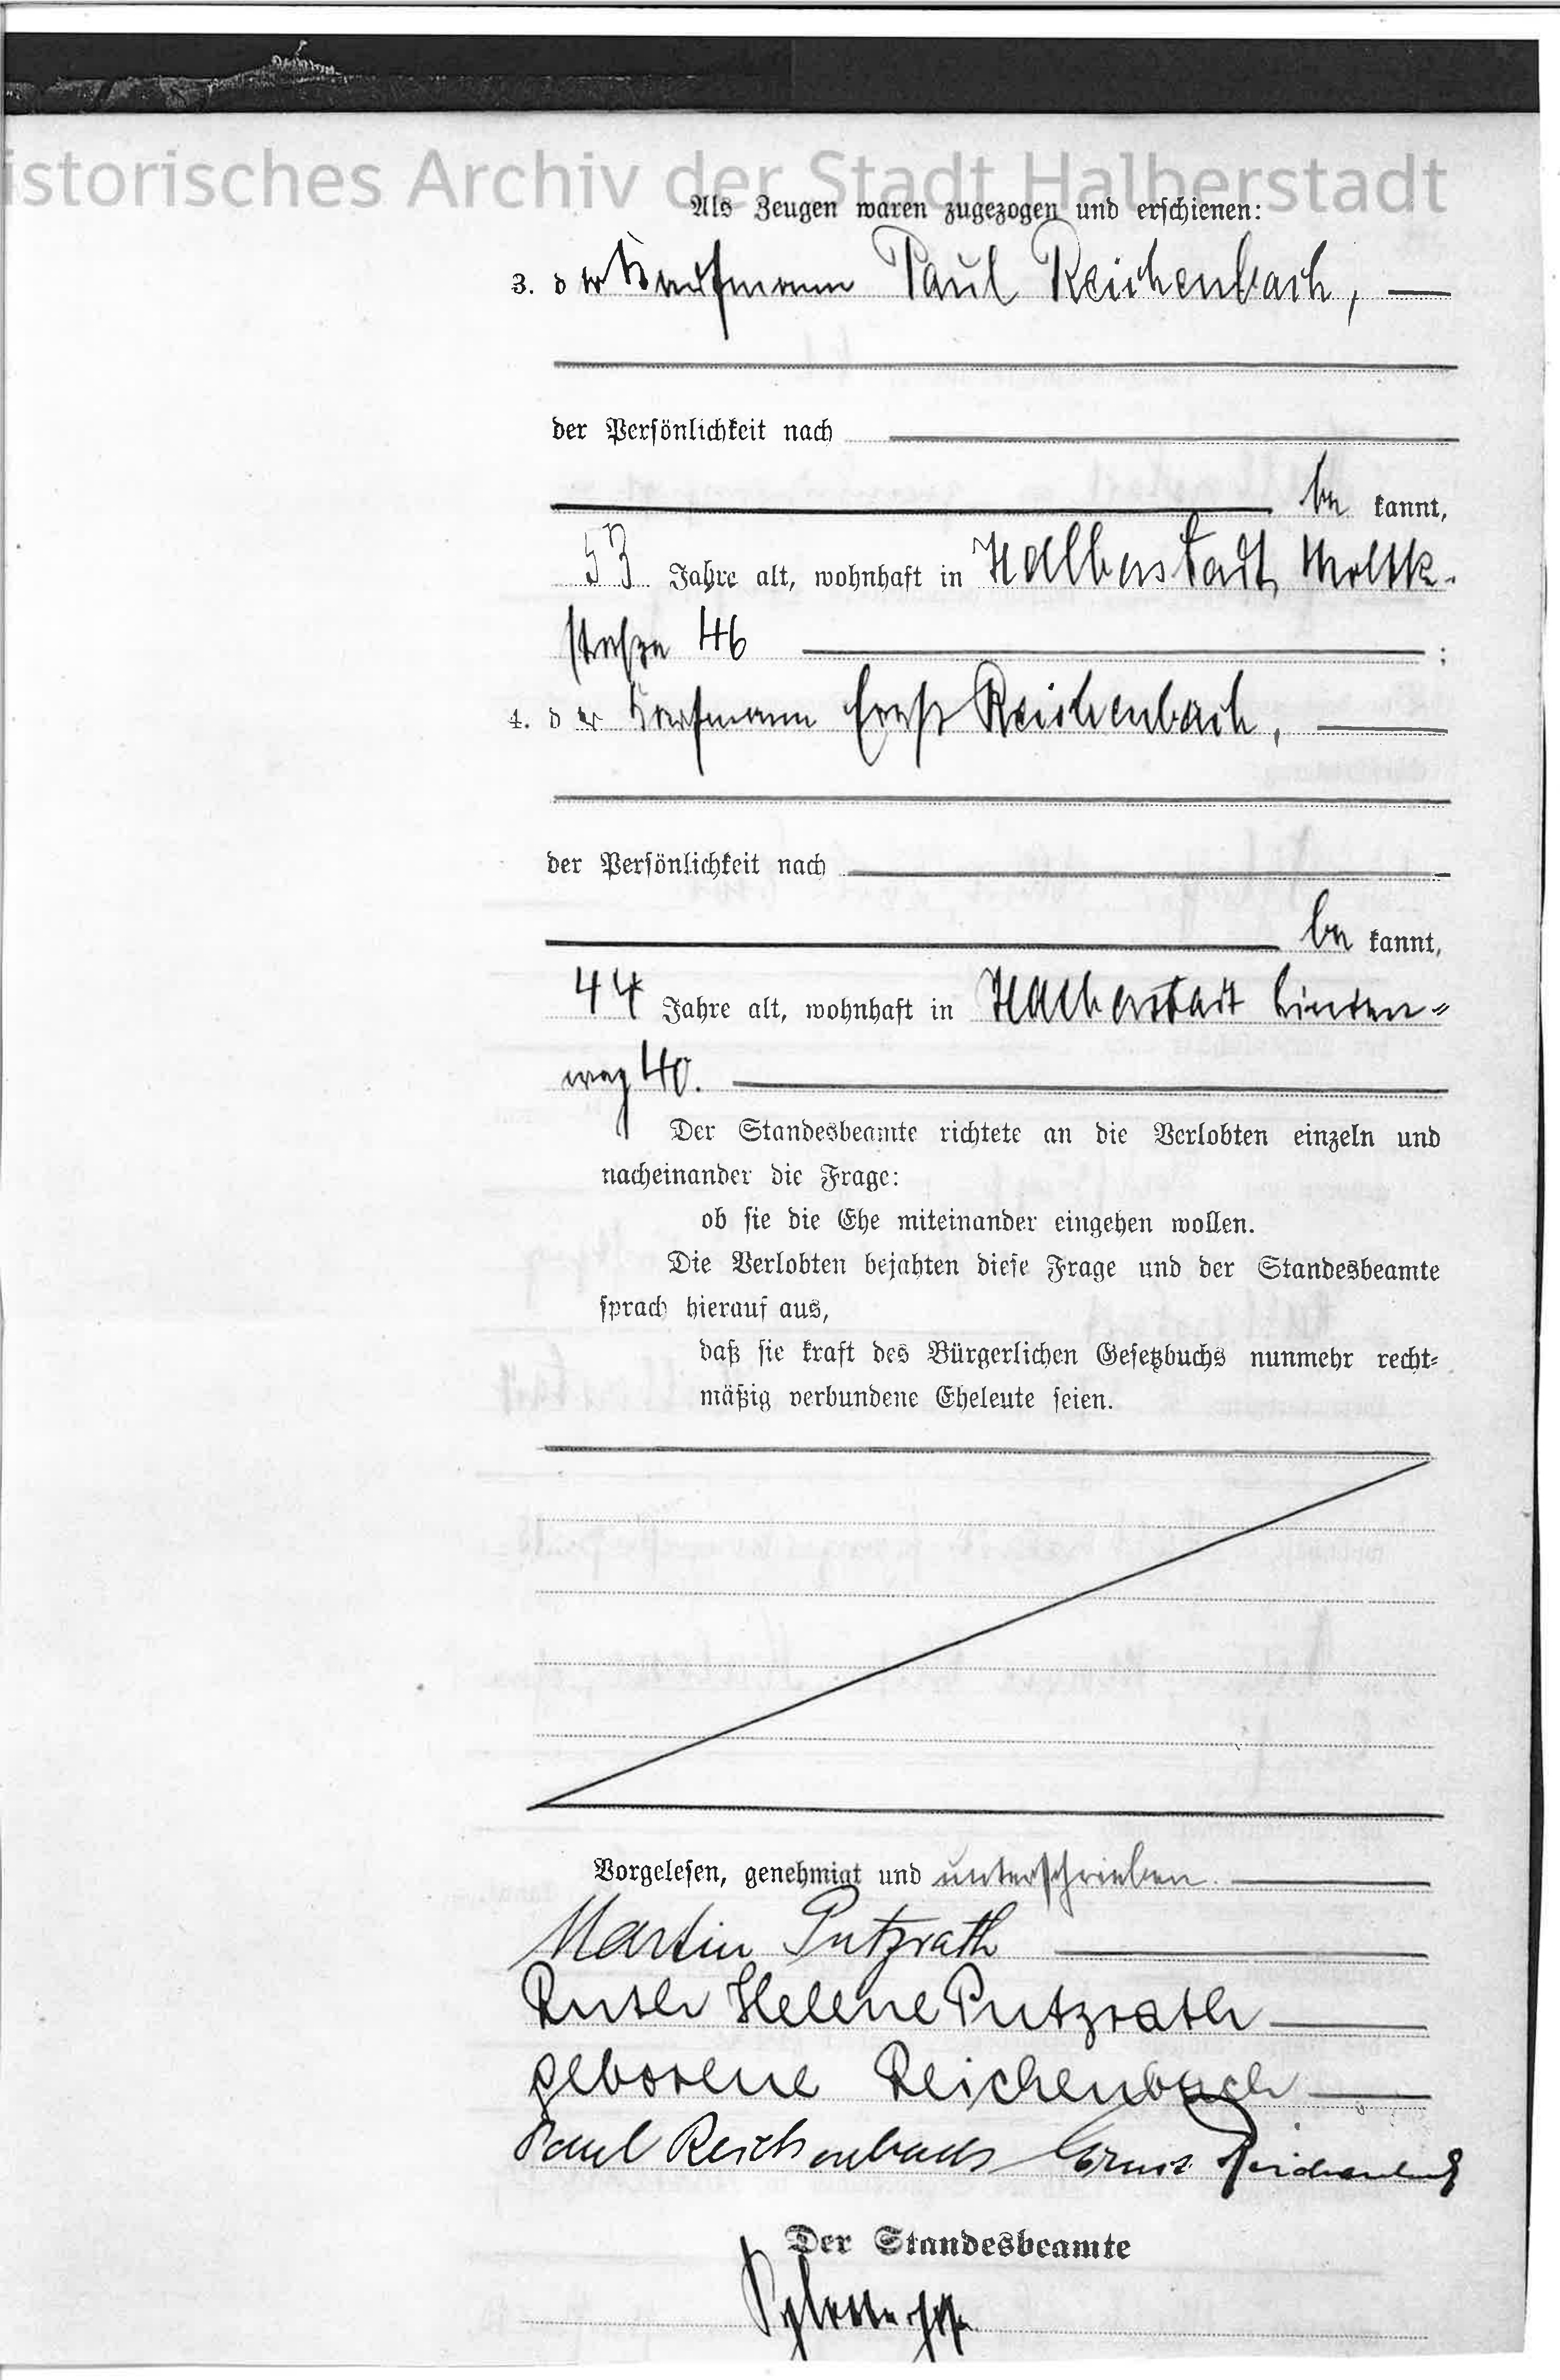 istorisches Archiv der Stadt Halberstadt
Als Zeugen waren zugezogen und erschienen:
3. der Kaufmann Paul Reichenbach,
der Persönlichkeit nach
be kannt,
53 Jahre alt, wohnhaft in Halberstadt, Moltke-
straße 46 ;
4. der Kaufmann Ernst Reichenbach,
der Persönlichkeit nach
be kannt,
44 Jahre alt, wohnhaft in Halberstadt Linden-
weg 40.
Der Standesbeamte richtete an die Verlobten einzeln und
nacheinander die Frage:
ob sie die Ehe miteinander eingehen wollen.
Die Verlobten bejahten diese Frage und der Standesbeamte
sprach hierauf aus,
daß sie kraft des Bürgerlichen Gesetzbuchs nunmehr recht-
mäßig verbundene Eheleute seien.
Vorgelesen, genehmigt und unterschrieben.
Martin Putzrath
Ruth Helene Putzrath
geborene Reichenbach
Paul Reichenbach Ernst Reichenbach
Der Standesbeamte